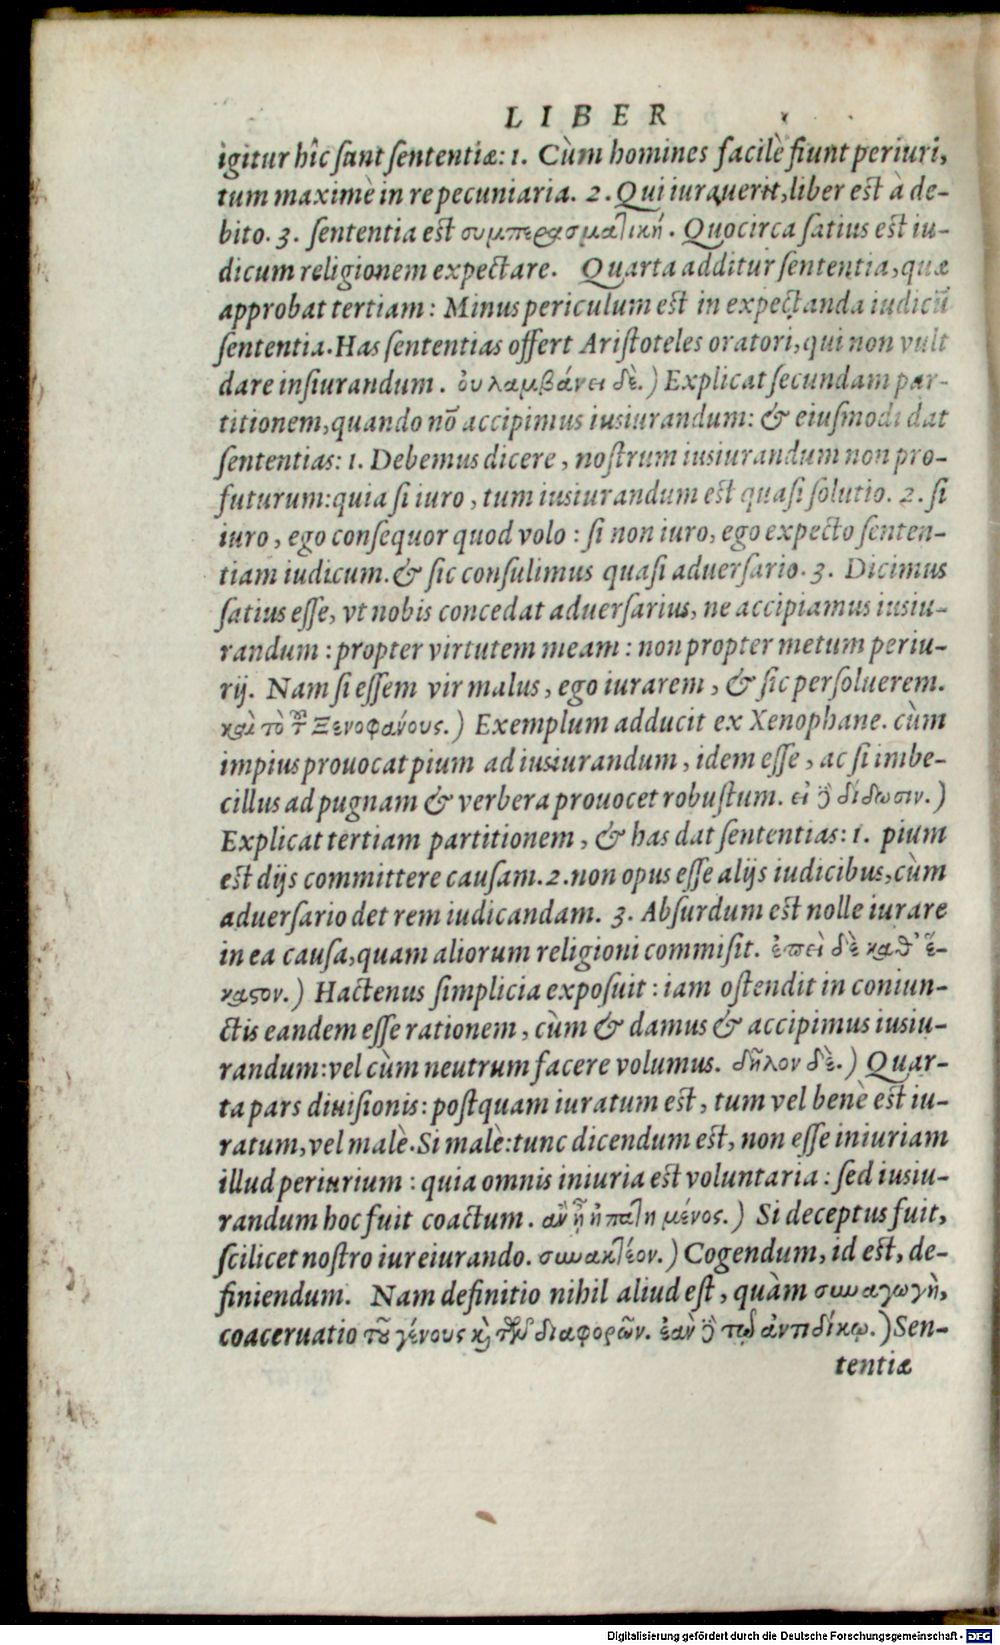 LIBER
igitur hîc sunt sententiæ: 1. Cùm homines facilè fiunt periuri,
tum maximè in re pecuniaria. 2. Qui iurauerit, liber est à de-
bito. 3. sententia est συμπερασματικὴ. Quocirca satius est iu-
dicum religionem expectare. Quarta additur sententia, quæ
approbat tertiam: Minus periculum est in expectanda iudicū
sententia. Has sententias offert Aristoteles oratori, qui non vult
dare insiurandum. οὐ λαμβάνει δὲ.) Explicat secundam par-
titionem, quando nō accipimus iusiurandum: & eiusmodi dat
sententias: 1. Debemus dicere, nostrum iusiurandum non pro-
futurum: quia si iuro, tum iusiurandum est quasi solutio. 2. si
iuro, ego consequor quod volo: si non iuro, ego expecto senten-
tiam iudicum. & sic consulimus quasi aduersario. 3. Dicimus
satius esse, vt nobis concedat aduersarius, ne accipiamus iusiu-
randum: propter virtutem meam: non propter metum periu-
rij. Nam si essem vir malus, ego iurarem, & sic persoluerem.
καὶ τὸ τȣ͂ Ξενοφάνους.) Exemplum adducit ex Xenophane. cùm
impius prouocat pium ad iusiurandum, idem esse, ac si imbe-
cillus ad pugnam & verbera prouocet robustum. εἰ δὲ δίδωσιν.)
Explicat tertiam partitionem, & has dat sententias: 1. pium
est dijs committere causam. 2. non opus esse alijs iudicibus, cùm
aduersario det rem iudicandam. 3. Absurdum est nolle iurare
in ea causa, quam aliorum religioni commisit. ἐπεὶ δὲ καθ’ ἕ-
καστον.) Hactenus simplicia exposuit: iam ostendit in coniun-
ctis eandem esse rationem, cùm & damus & accipimus iusiu-
randum: vel cùm neutrum facere volumus. δῆλον δὲ.) Quar-
ta pars diuisionis: postquam iuratum est, tum vel benè est iu-
ratum, vel malè. Si malè: tunc dicendum est, non esse iniuriam
illud periurium: quia omnis iniuria est voluntaria: sed iusiu-
randum hoc fuit coactum. ἂν ᾖ ἠπατημένος.) Si deceptus fuit,
scilicet nostro iureiurando. συνακτέον.) Cogendum, id est, de-
finiendum. Nam definitio nihil aliud est, quàm συναγωγὴ,
coaceruatio τοῦ γένους καὶ τῶν διαφορῶν. ἐὰν δὲ τῷ ἀντιδίκῳ.) Sen-
tentiæ
Digitalisierung gefördert durch die Deutsche Forschungsgemeinschaft - DFG